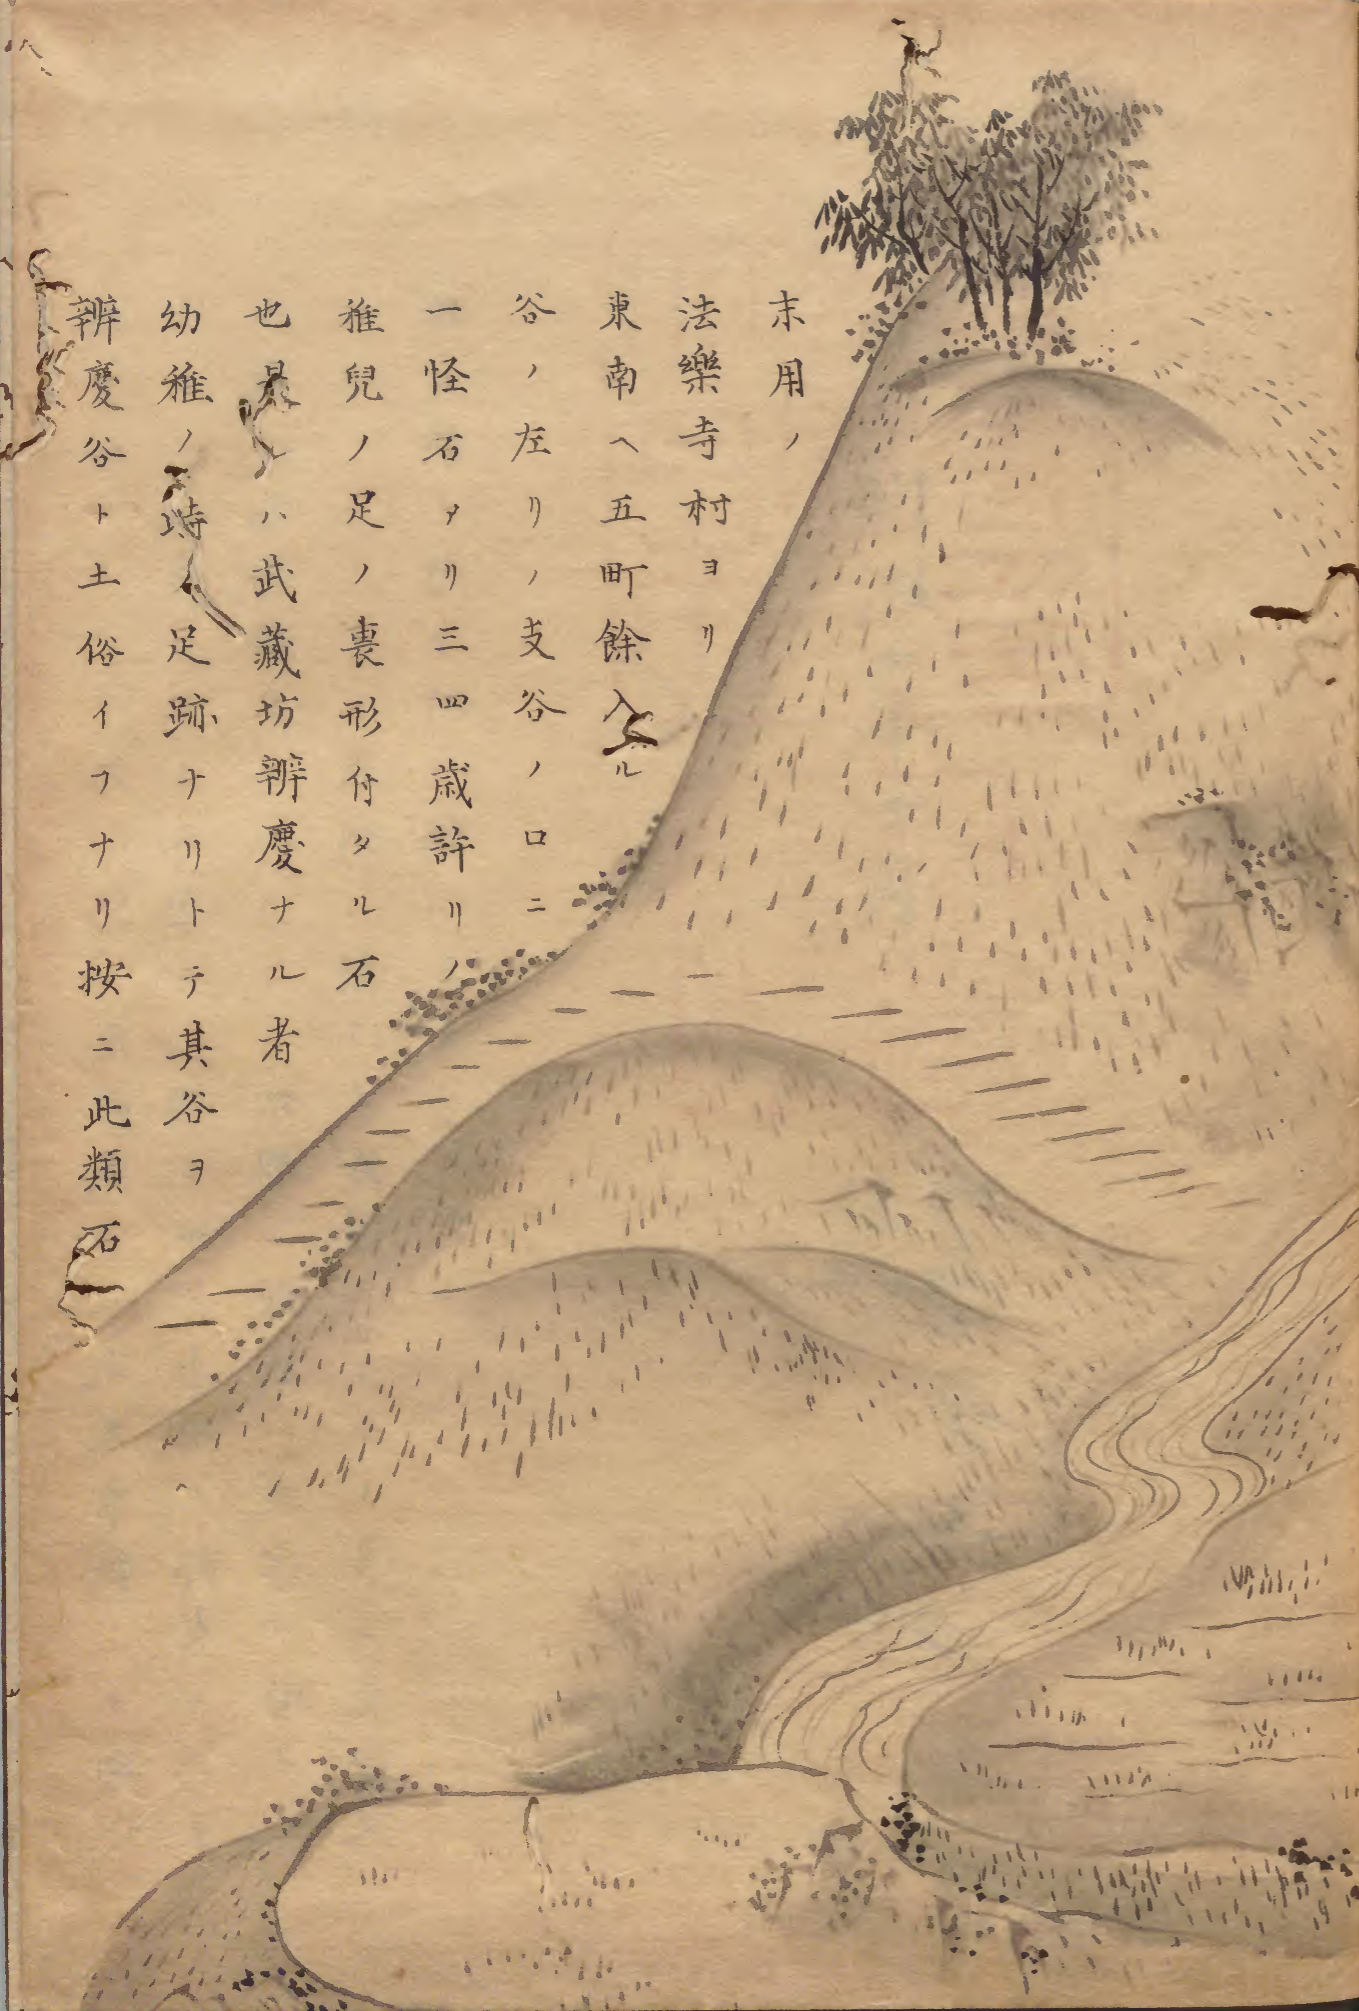 末用ノ
法樂寺村ヨリ
東南ヘ五町餘入ル
谷ノ左リノ支谷ノ口ニ
一怪石アリ三四歳許リノ
稚兒ノ足ノ裏形付タル石
也是レハ武藏坊辨慶ナル者
幼稚ノ時ノ足跡ナリトテ其谷ヲ
辨慶谷ト土俗イフナリ按ニ此類石